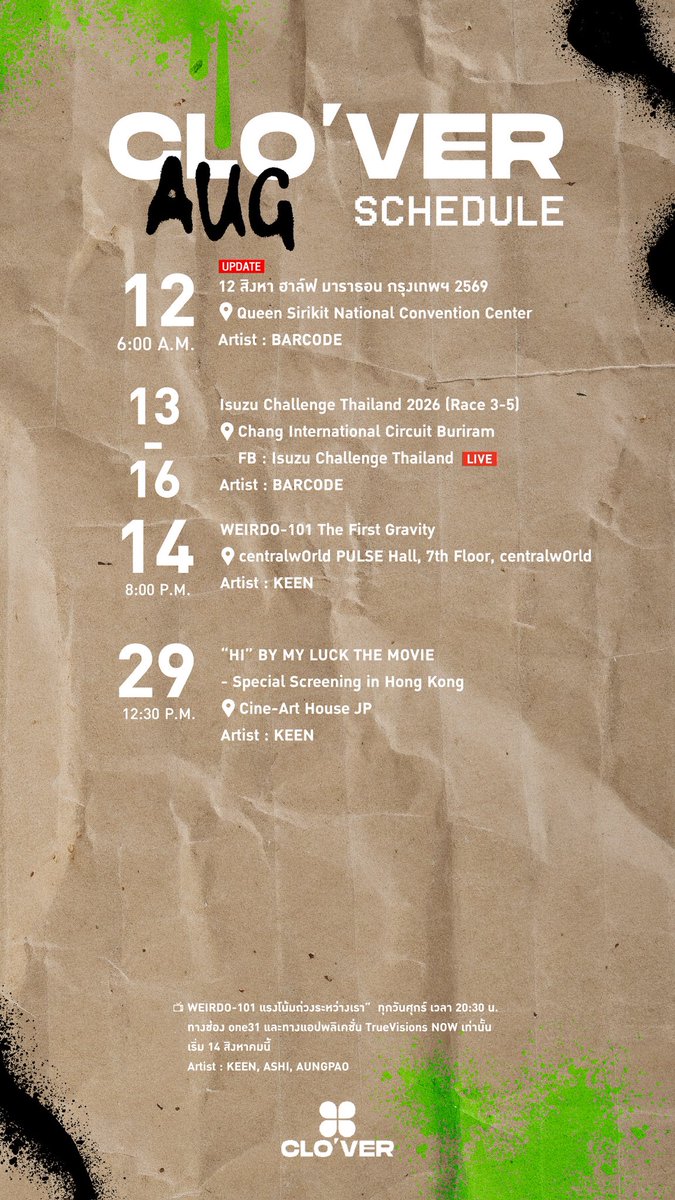 CLO'VER
AUG
SCHEDULE
UPDATE
12
6:00 A.M.
12 สิงหา ฮาล์ฟ มาราธอน กรุงเทพฯ 2569
Queen Sirikit National Convention Center
Artist : BARCODE
13
-
16
Isuzu Challenge Thailand 2026 (Race 3-5)
Chang International Circuit Buriram
FB : Isuzu Challenge Thailand LIVE
Artist : BARCODE
14
8:00 P.M.
WEIRDO-101 The First Gravity
centralw0rld PULSE Hall, 7th Floor, centralw0rld
Artist : KEEN
29
12:30 P.M.
“HI” BY MY LUCK THE MOVIE
- Special Screening in Hong Kong
Cine-Art House JP
Artist : KEEN
WEIRDO-101 แรงโน้มถ่วงระหว่างเรา” ทุกวันศุกร์ เวลา 20:30 น.
ทางช่อง one31 และทางแอปพลิเคชั่น TrueVisions NOW เท่านั้น
เริ่ม 14 สิงหาคมนี้
Artist : KEEN, ASHI, AUNGPAO
CLO'VER